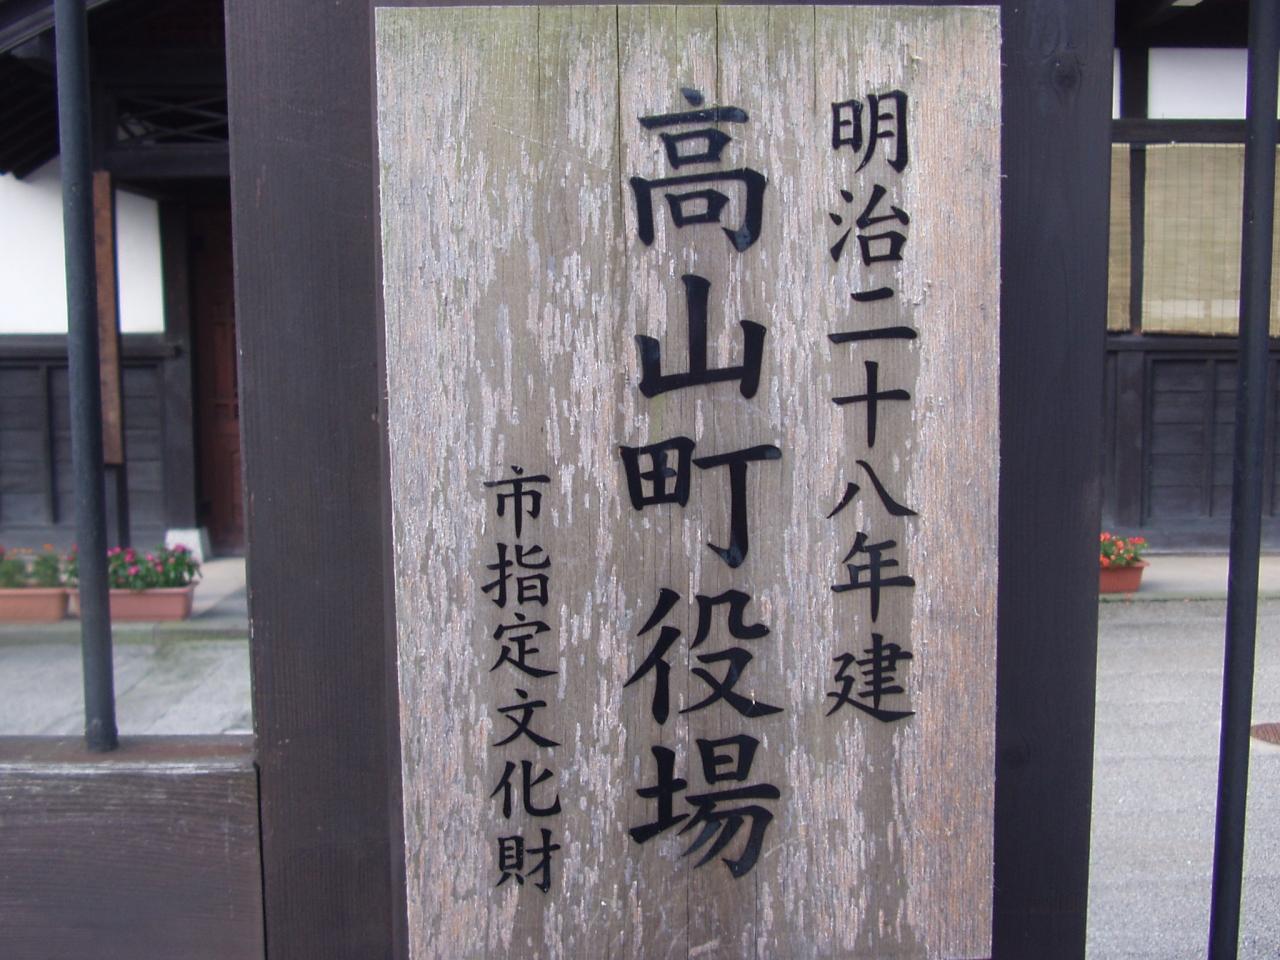 明治二十八年建
高山町役場
市指定文化財